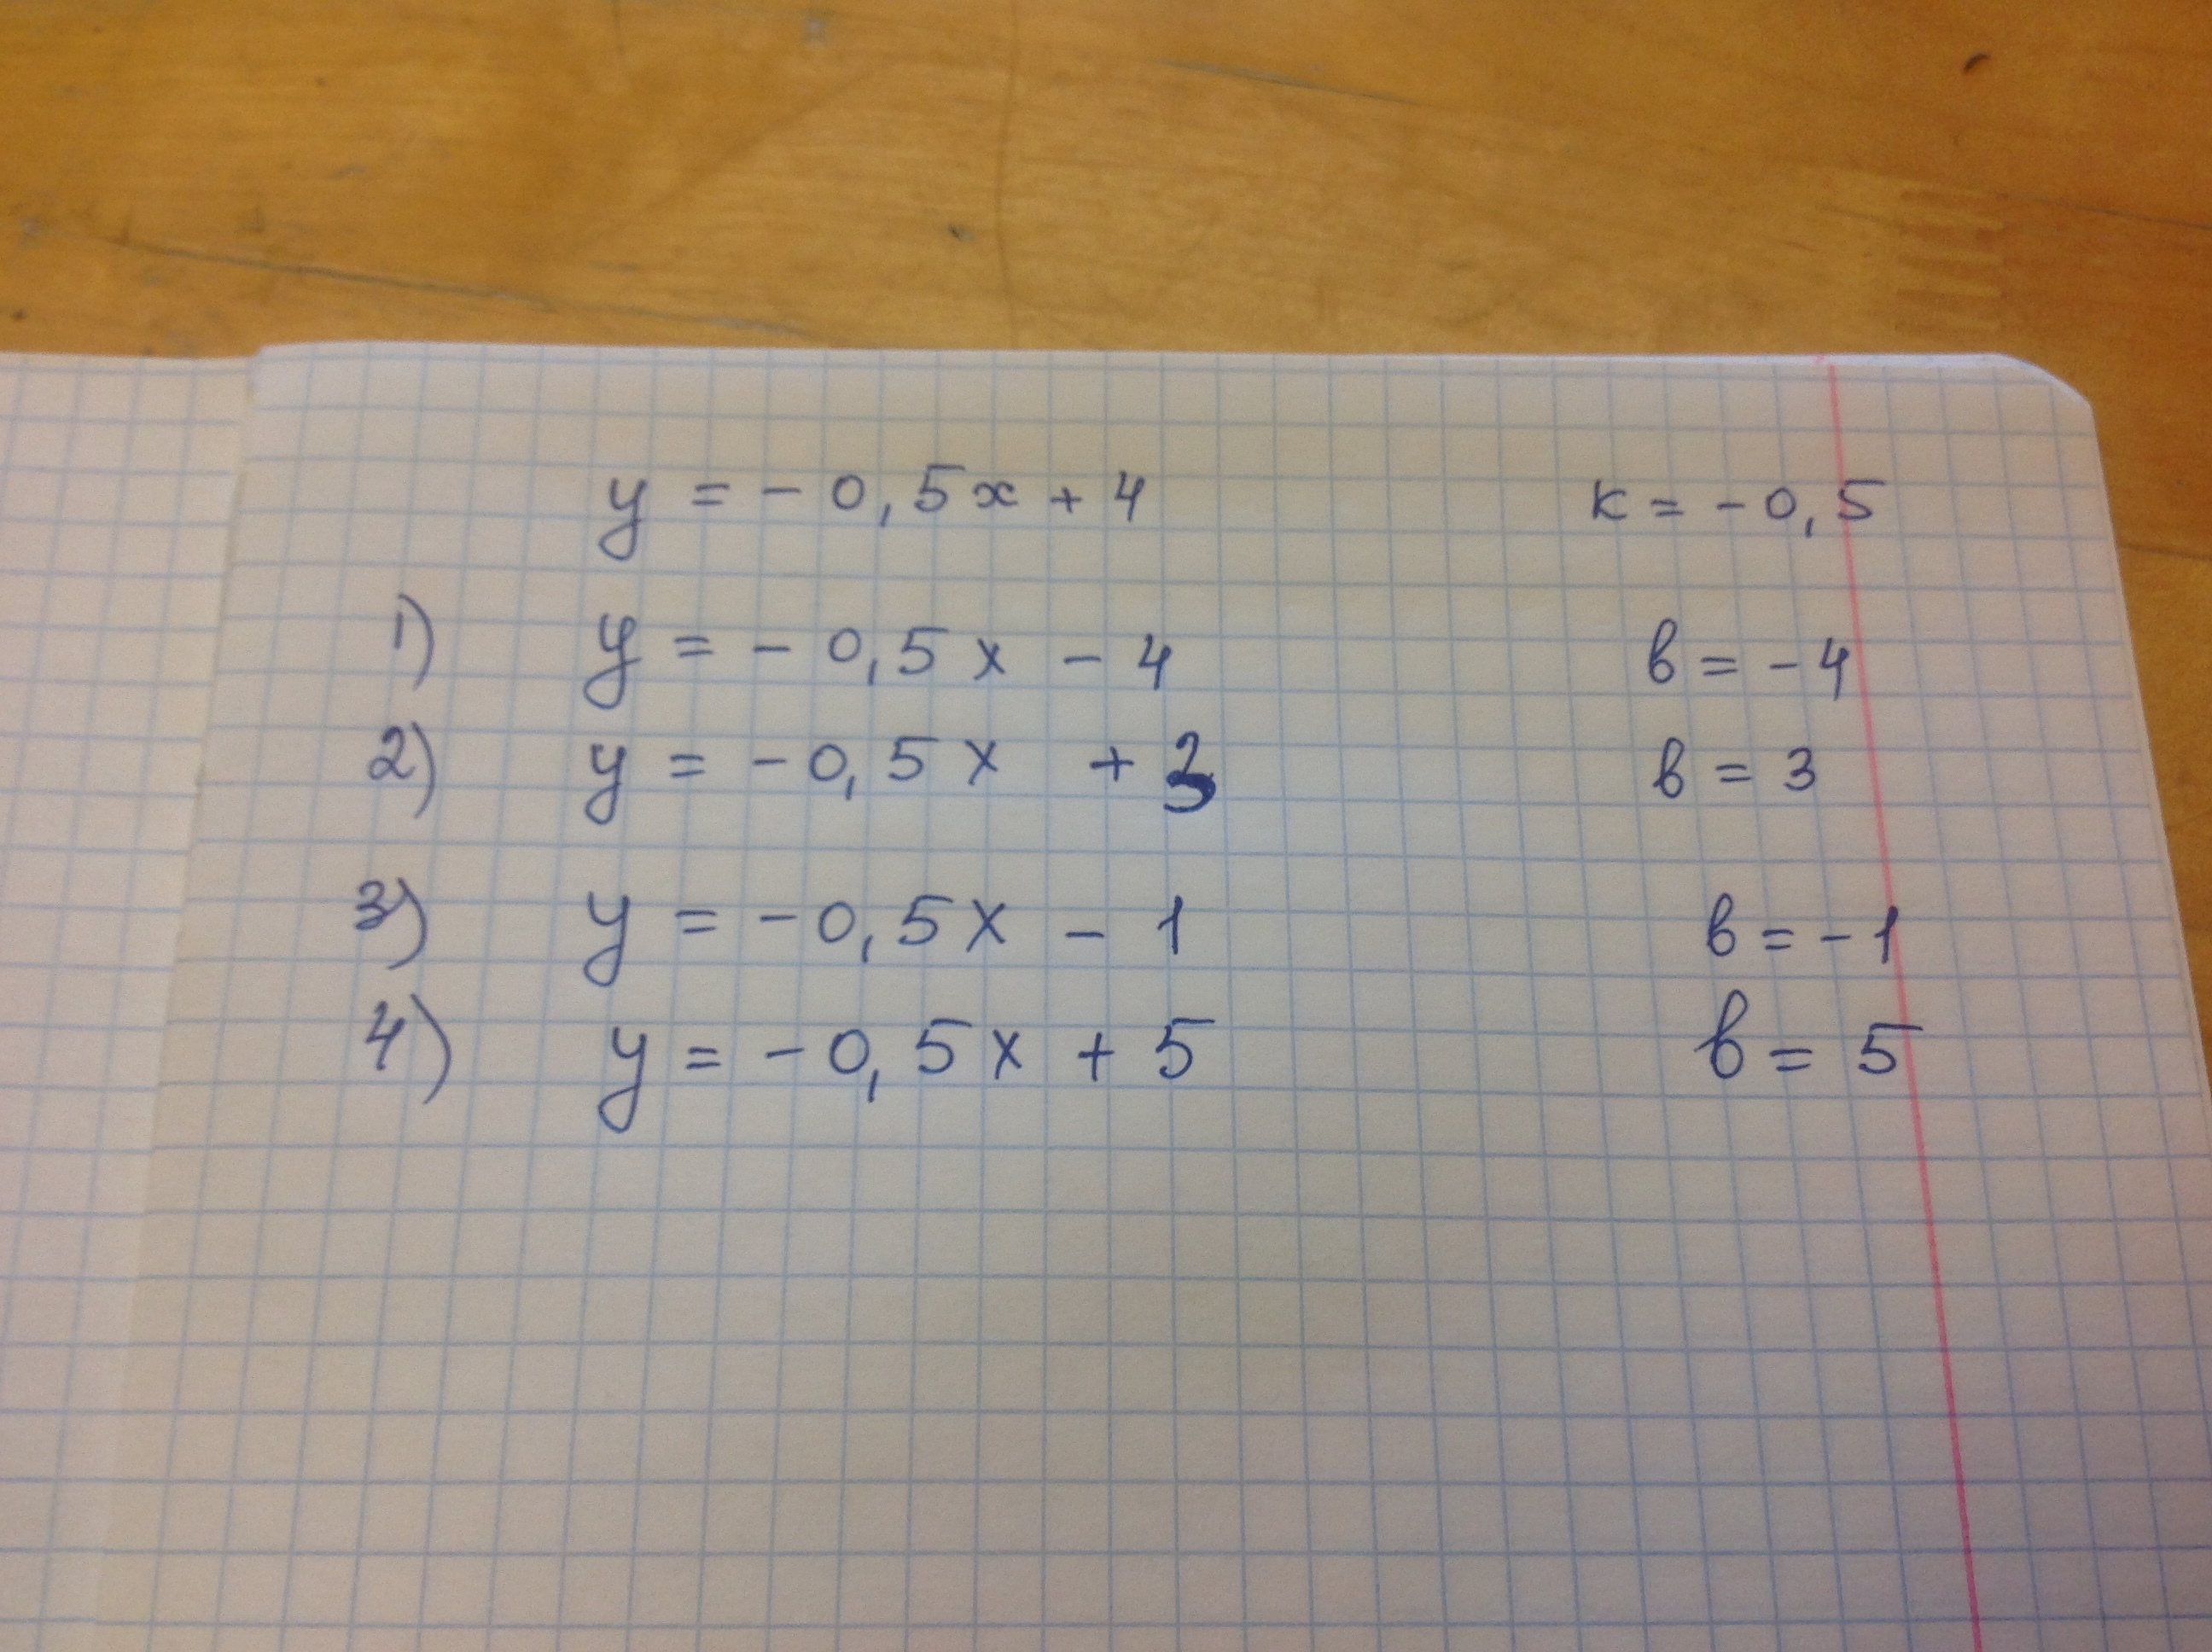 y = - 0,5x + 4 к = - 0,5
1) y = - 0,5x - 4 в = - 4
2) y = - 0,5x + 3 в = 3
3) y = - 0,5x - 1 в = - 1
4) y = - 0,5x + 5 в = 5